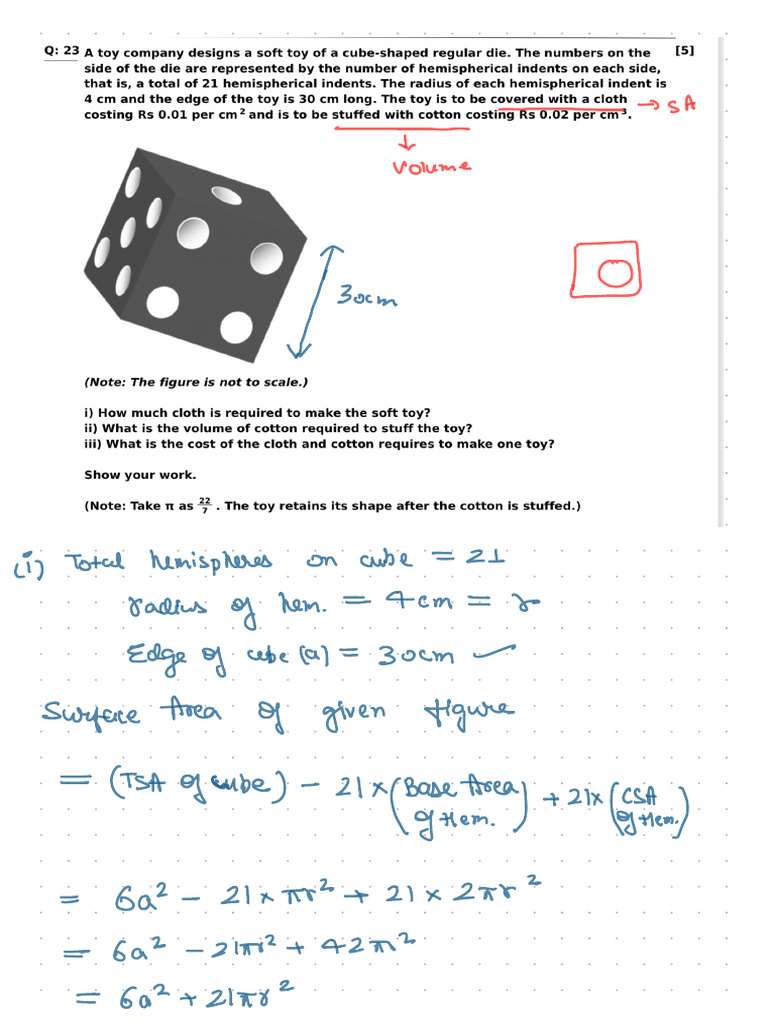 Q: 23 A toy company designs a soft toy of a cube-shaped regular die. The numbers on the [5]
side of the die are represented by the number of hemispherical indents on each side,
that is, a total of 21 hemispherical indents. The radius of each hemispherical indent is
4 cm and the edge of the toy is 30 cm long. The toy is to be covered with a cloth → SA
costing Rs 0.01 per cm² and is to be stuffed with cotton costing Rs 0.02 per cm³.
↓
Volume
30cm
(Note: The figure is not to scale.)
i) How much cloth is required to make the soft toy?
ii) What is the volume of cotton required to stuff the toy?
iii) What is the cost of the cloth and cotton requires to make one toy?
Show your work.
(Note: Take π as 22/7 . The toy retains its shape after the cotton is stuffed.)
(i) Total hemispheres on cube = 21
radius of hem. = 4cm = r
Edge of cube (a) = 30cm
Surface Area of given figure
= (TSA of cube) - 21 × (Base Area of Hem.) + 21 × (CSA of Hem.)
= 6a² - 21 × πr² + 21 × 2πr²
= 6a² - 21πr² + 42πr²
= 6a² + 21πr²